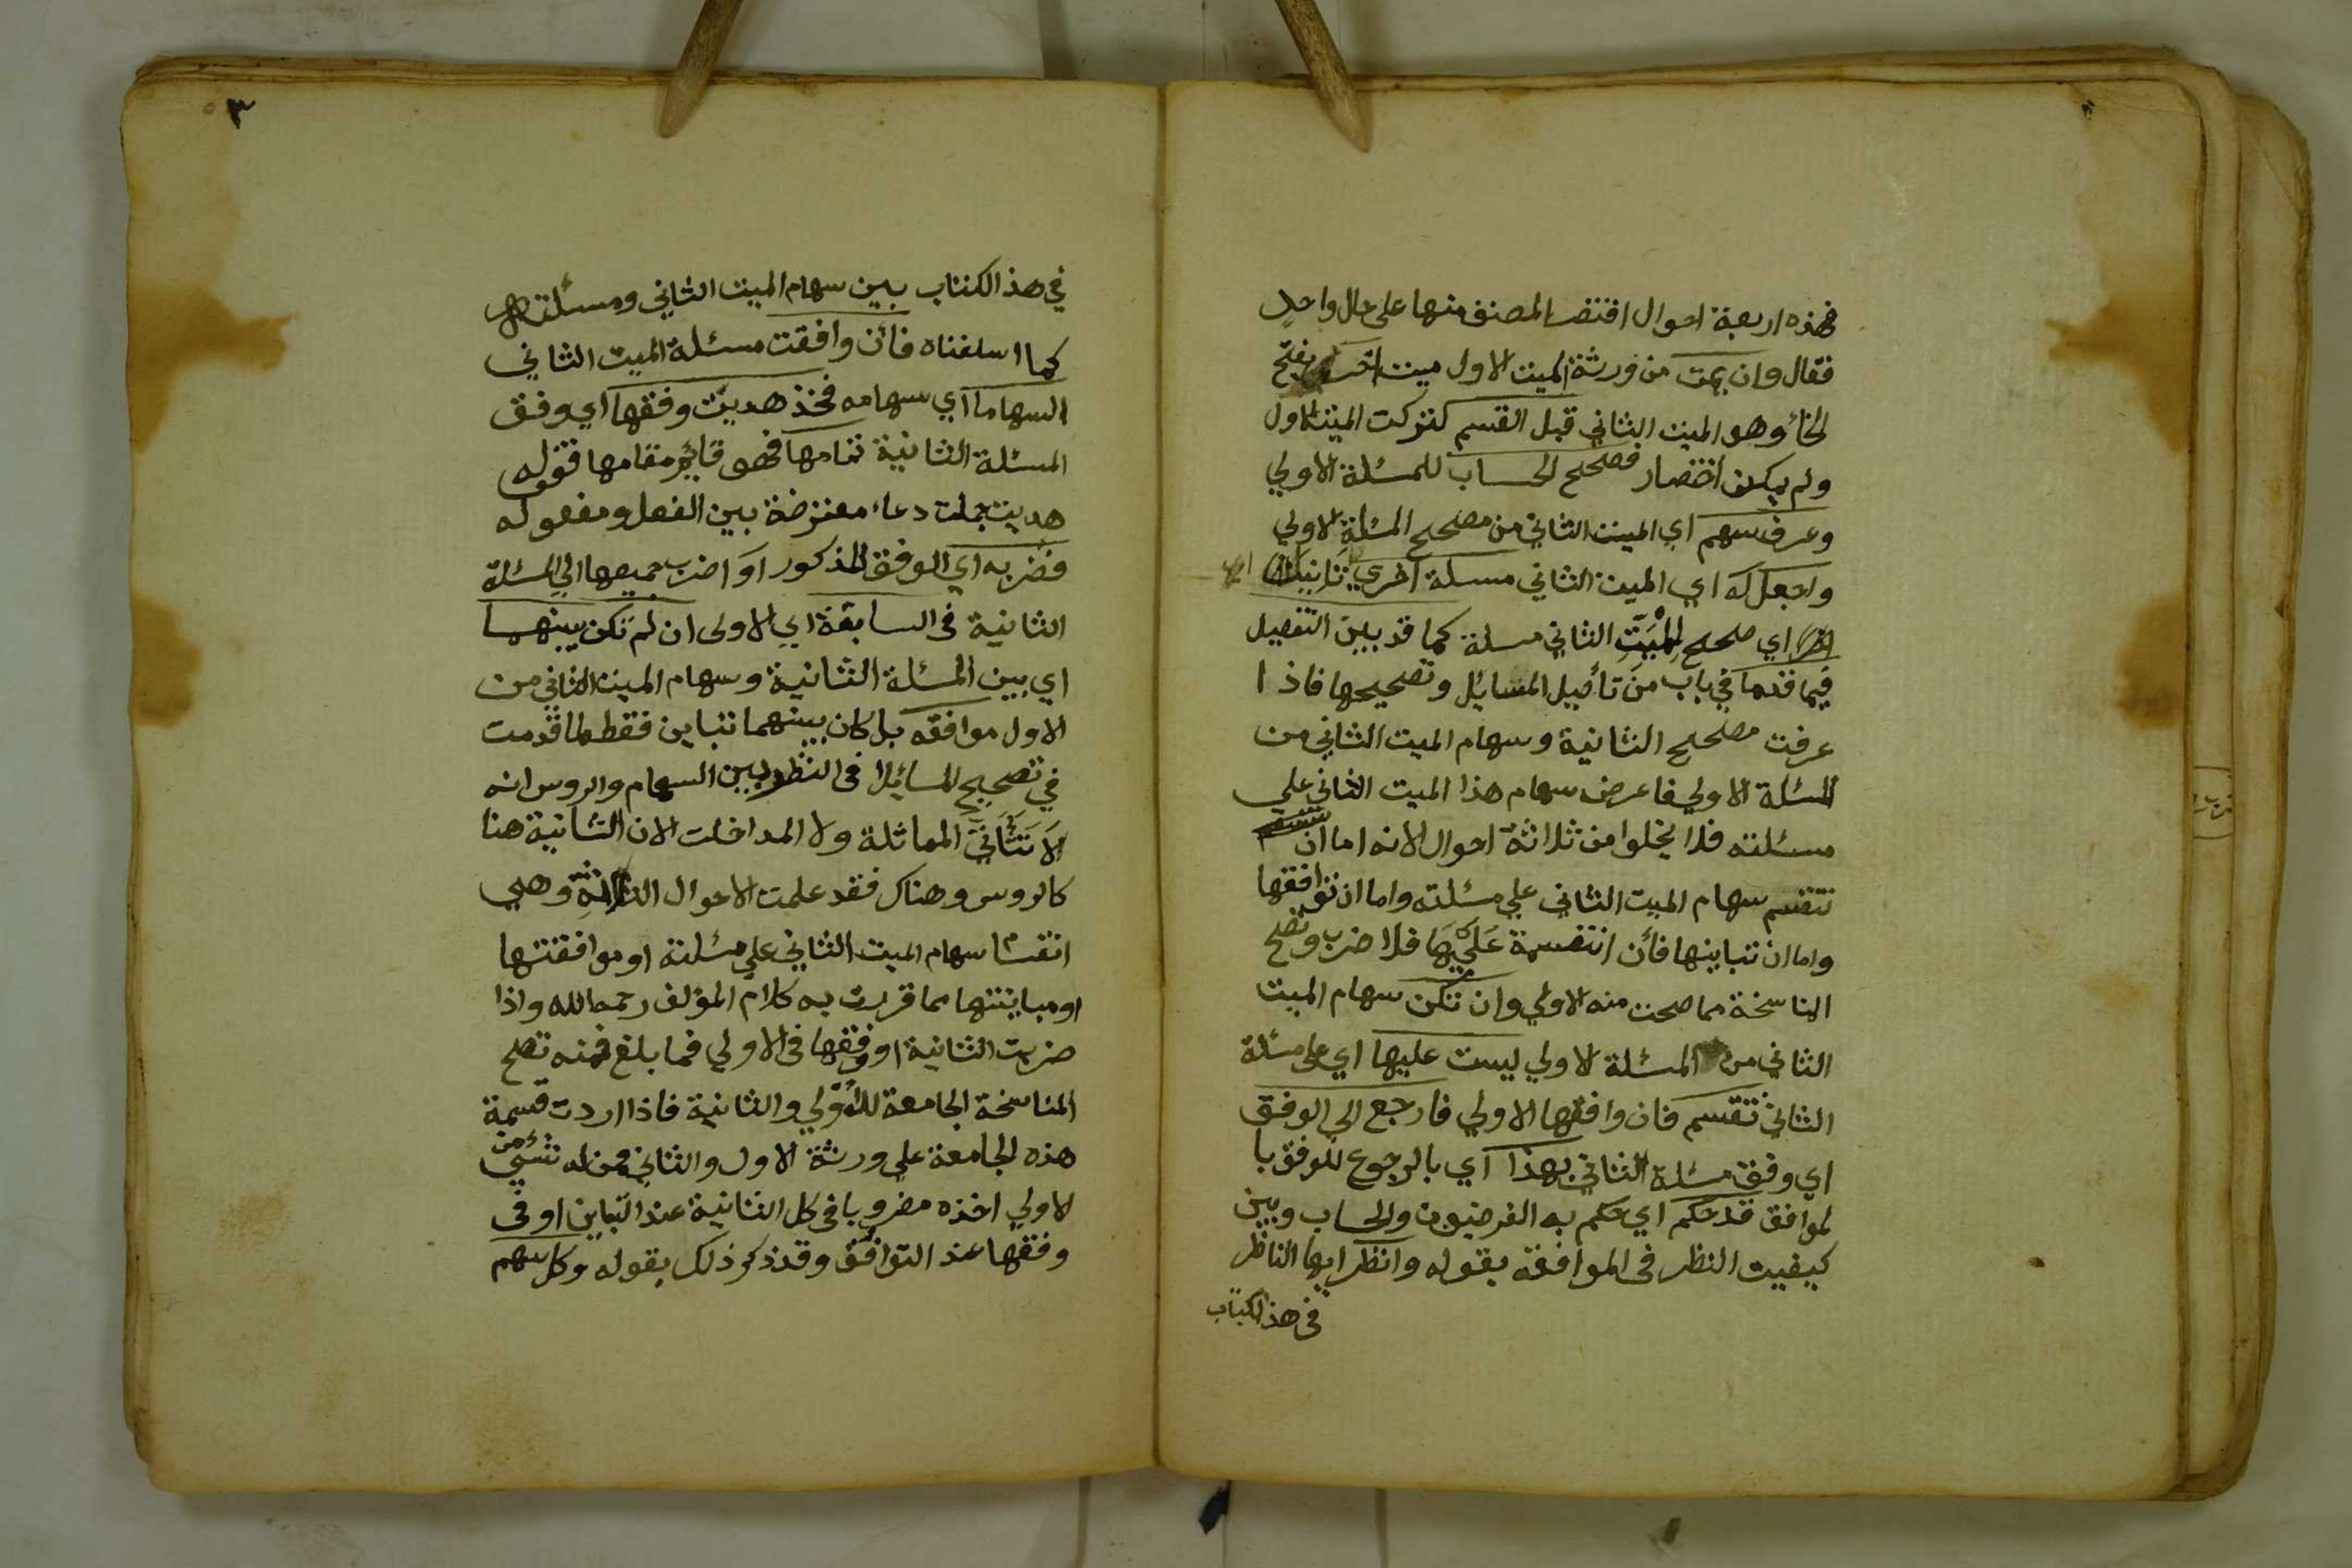 فهذه اربعة احوال اقتصر المصنف منها على حال واحدٍ
فقال وان يمت من ورثة الميت الاول ميت اخر بفتح
الخاء وهو الميت الثاني قبل القسم لتركت الميت الاول
ولم يمكن اختصار فصحح الحساب للمسئلة الاولي
وعرف سهم اي الميت الثاني من مصحح المسئلة الاولي
واجعل له اي الميت الثاني مسئلة اخري
اي صحح للميت الثاني مسئلة كما قد بين التفصيل
فيما قدما في باب من تأصيل المسايل وتصحيحها فاذا
عرفت مصحح الثانية وسهام الميت الثاني من
المسئلة الاولي فاعرض سهام هذا الميت الثاني علي
مسئلته فلا يخلوا من ثلاثة احوال لانه اما ان
تنقسم سهام الميت الثاني علي مسئلته واما ان توافقها
واما ان تباينها فأن انتقسمة عليها فلا ضرب وتصح
المناسخة مما صحت منه الاولي وان تكن سهام الميت
الثاني من المسئلة الاولي ليست عليها اي على مسئلة
الثاني تنقسم فان وافقها الاولي فارجع الي الوفق
اي وفق مسئلة الثاني بهذا اي بالرجوع للوفق با
لموافق قد حكم اي حكم به الفرضيون والحساب وبين
كيفيت النظر في الموافقة بقوله وانظر ايها الناظر
في هذا الكتاب
٣
في هذ الكتاب بين سهام الميت الثاني ومسئلته
كما اسلفناه فأن وافقت مسئلة الميت الثاني
السهاما اي سهامه فخذ هديت وفقها اي وفق
المسئلة الثانية تمامها فهو قائم مقامها فقوله
هديت جملت دعاء معترضة بين الفعل ومفعوله
فضربه اي الوفق المذكور او اضرب جميعها اي المسئلة
الثانية في السابقة اي الاولى ان لم تكن بينهما
اي بين المسئلة الثانية وسهام الميت الثاني من
الاول موافقه بل كان بينهما تباين فقط لما قدمت
في تصحيح المسايل في النظر بين السهام والروس انه
لا تتأتي المماثلة ولا المداخلت لان الثانية هنا
كالروس وهناك فقد علمت الاحوال الثلاثة وهي
انقسام سهام الميت الثاني علي مسئلته او موافقتها
او مباينتها مما قررت به كلام المؤلف رحمه الله واذا
ضربت الثانية او وفقها في الاولي فما بلغ فمنه تصح
المناسخة الجامعة للأولي والثانية فاذا اردت قسمة
هذه الجامعة علي ورثة الاول والثاني فمن له شئ من
الاولي اخذه مضروبا في كل الثانية عند التباين او في
وفقها عند التوافق وقد ذكر ذلك بقوله وكل سهم